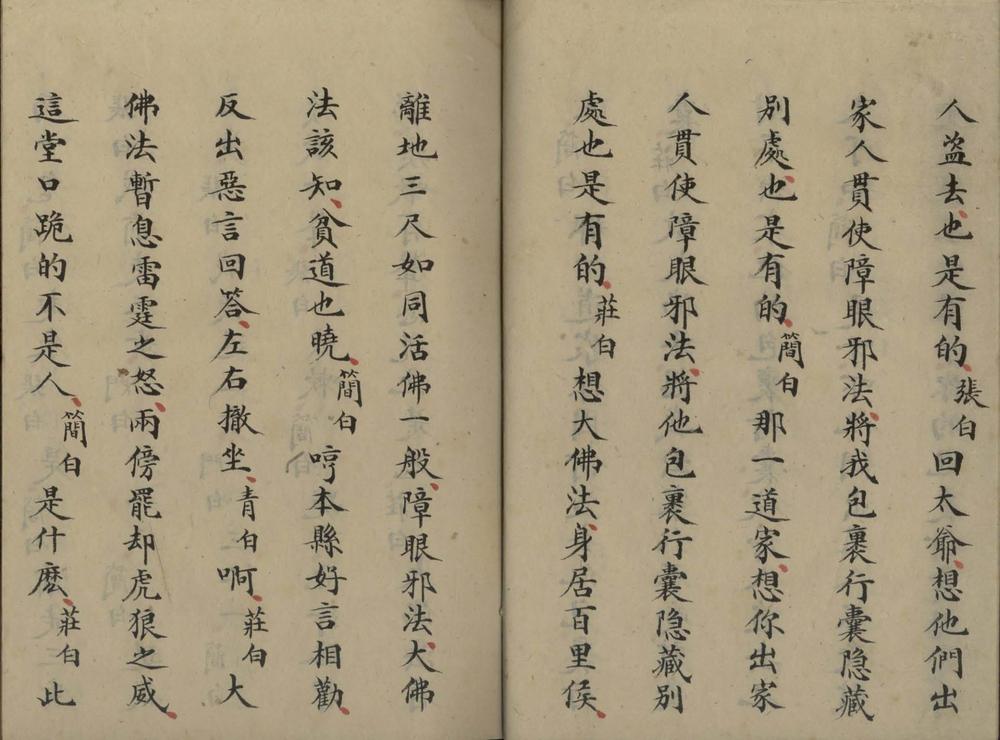 人盗去、也是有的、張白回太爺、想他們出
家人貫使障眼邪法、將我包裹行囊隐藏
別處、也是有的、簡白那一道家、想你出家
人貫使障眼邪法、將他包裹行囊隐藏別
處也是有的、莊白想大佛法、身居百里侯、
離地三尺如同活佛一般、障眼邪法、大佛
法該知、貧道也曉、簡白哼本縣好言相勸、
反出惡言回答、左右撤坐、青白啊、莊白大
佛法暫息雷霆之怒、兩傍罷却虎狼之威、
這堂口跪的不是人、簡白是什麽、莊白此